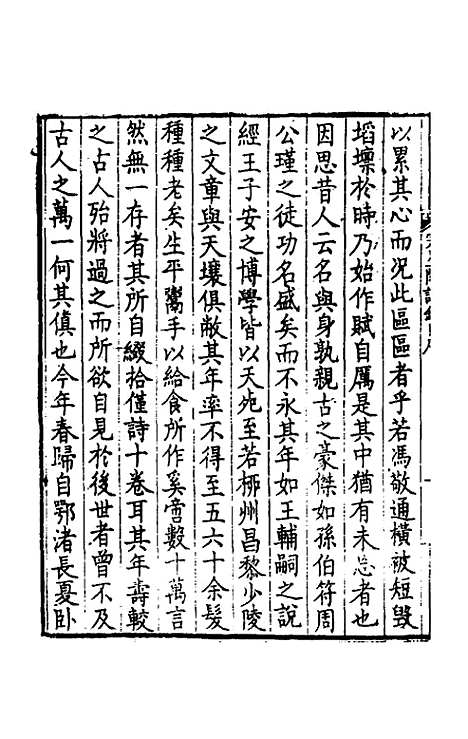 以累其心而況此區區者乎若馮敬通橫被短毀
壈於時乃始作賦自厲是其中猶有未忘者也
因思昔人云名與身孰親古之豪傑如孫伯符周
公瑾之徒功名盛矣而不永其年如王輔嗣之說
經王子安之博學皆以夭死至若桞州昌黎少陵
之文章與天壤俱敝其年率不得至五六十余髮
種種老矣生平鬻手以給食所作奚啻數十萬言
然無一存者其所自綴拾僅詩十卷耳其年壽較
之古人殆將過之而所欲自見於後世者曾不及
古人之萬一何其傎也今年春歸自鄂渚長夏卧